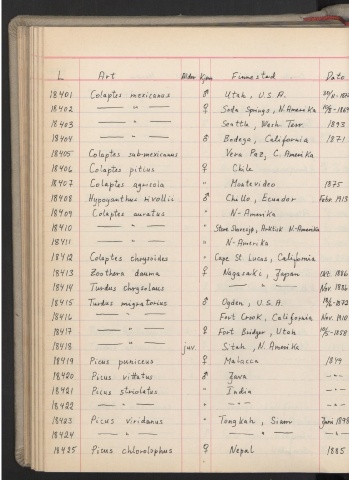 L Art Alder Kjøn Finnested Dato
18401 Colaptes mexicanus ♂ Utah, U.S.A.
18402 — " — ♀ Soda Springs, N. Amerika
18403 — " — Seattle, Wash. Terr. 1893
18404 — " — ♂ Bodega, California 1871
18405 Colaptes sub-mexicanus Vera Paz, C. Amerika
18406 Colaptes piticus ♀ Chile
18407 Colaptes agricola " Montevideo 1875
18408 Hypoxanthus rivollii ♂ Chillo, Ecuador Febr. 1913
18409 Colaptes auratus " N-Amerika
18410 — " — " Arktisk N-Amerika
18411 — " — " N-Amerika
18412 Colaptes chrysoides " Cape St Lucas, California
18413 Zoothera dauma ♀ Nagasaki, Japan Okt. 1886
18414 Turdus chrysolaus " — " — Nov 1886
18415 Turdus migratorius ♂ Ogden, U.S.A.
18416 — " — Fort Crook, California Nov. 1910
18417 — " — ♀ Fort Bridger, Utah
18418 — " — juv. Sitka, N. Amerika
18419 Picus puniceus ♀ Malacca 1879
18420 Picus vittatus ♂ Java — " —
18421 Picus striolatus " India — " —
18422 — " — " — " — — " —
18423 Picus viridanus " Tongkah, Siam Juni 1898
18424 — " — — " — "
18425 Picus chlorolophus ♀ Nepal 1885